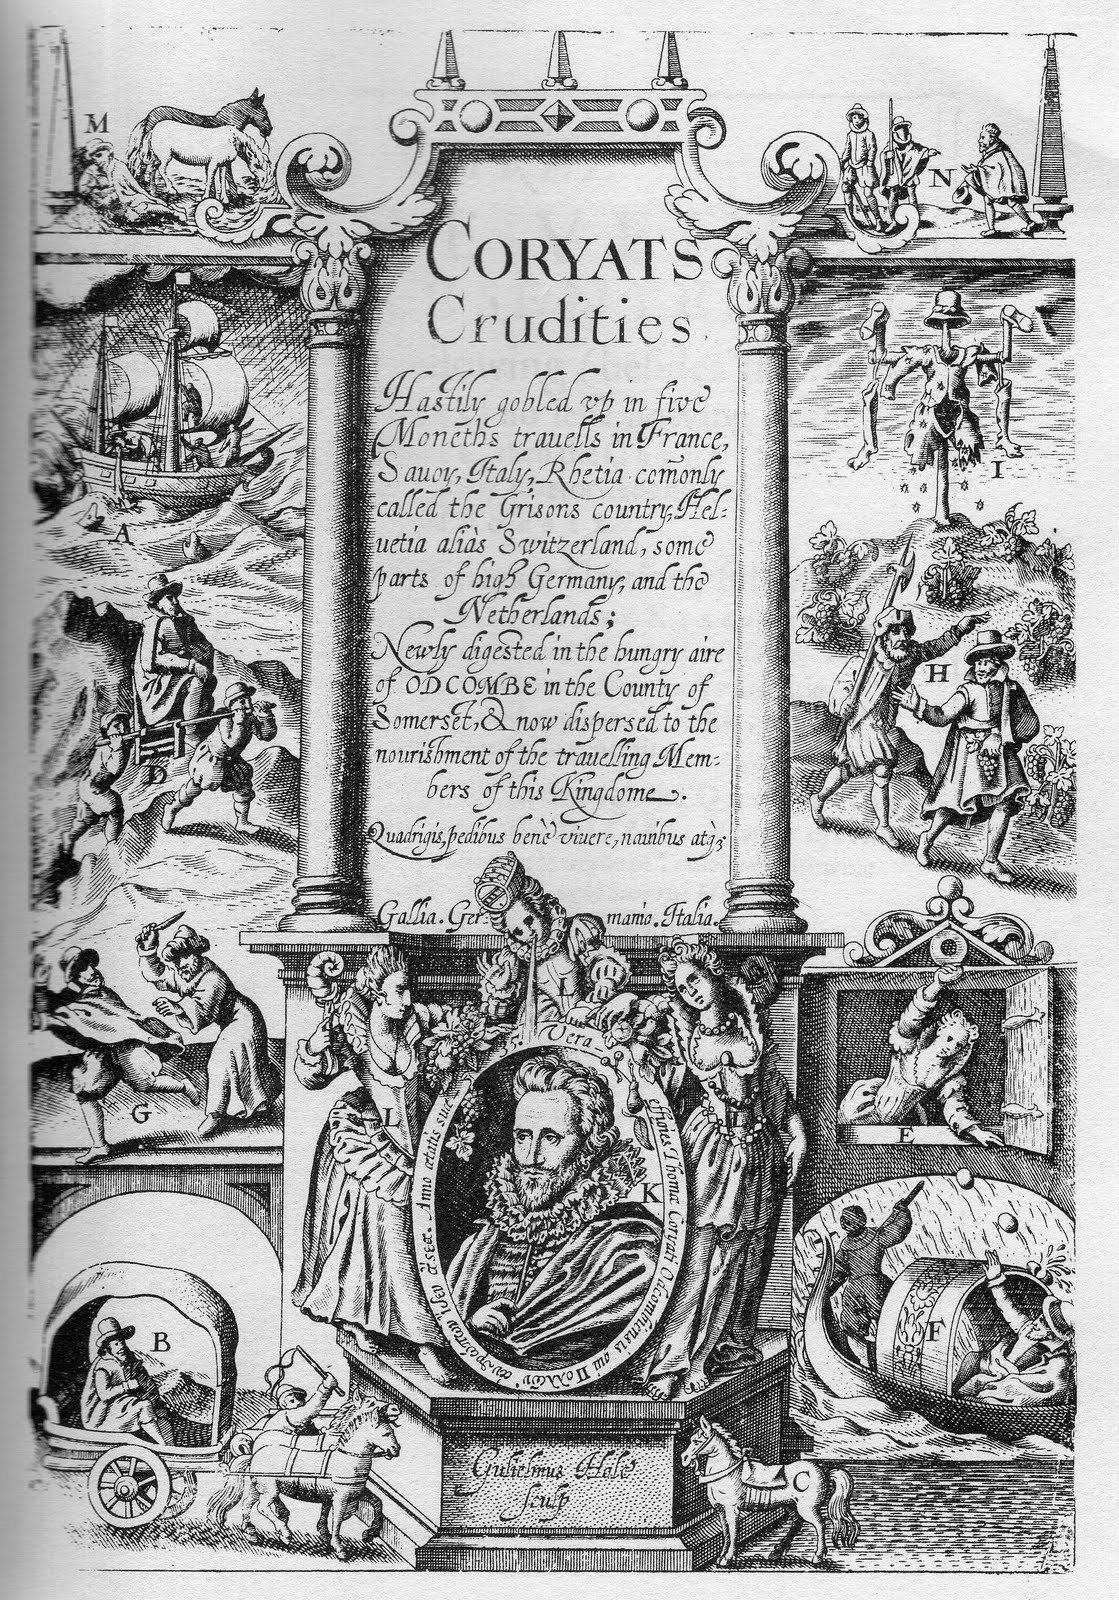 CORYATS
Crudities.
Hastily gobled vp in five
Moneths trauells in France,
Sauoy, Italy, Rhetia com̄only
called the Grisons country, Hel-
uetia aliàs Switzerland, some
parts of high Germany, and the
Netherlands;
Newly digested in the hungry aire
of ODCOMBE in the County of
Somerset, & now dispersed to the
nourishment of the trauelling Mem-
bers of this Kingdome.
Quadrigis, pedibus benè viuere, nauibus atq3
Gallia. Ger- mania. Italia.
M
N
A
I
D
H
G
E
L
L
L
K
Vera
effigies Thomæ Coryati Odcombiensis
Anno ætatis suæ
B
F
C
Gulielmus Hole
sculp